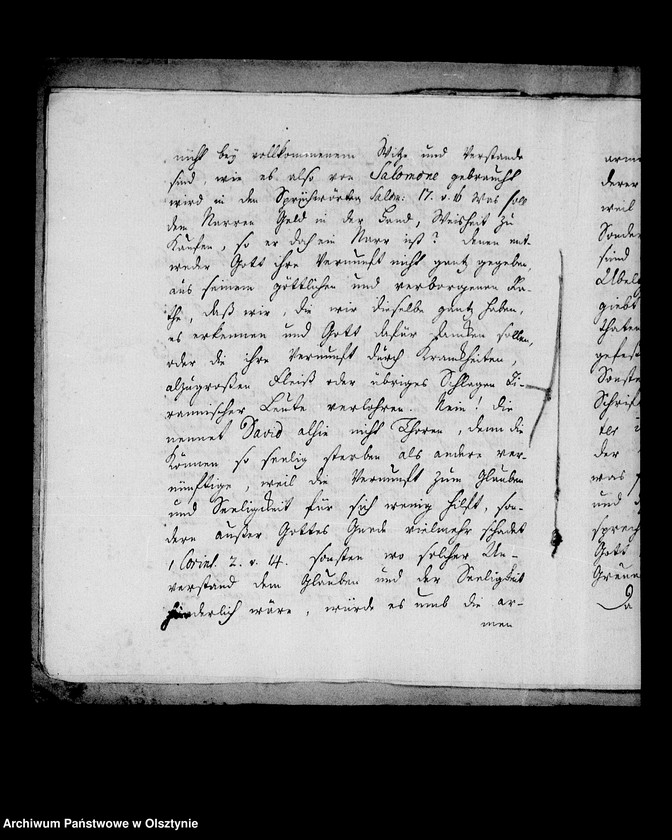 nicht bey vollkommenem Witze und Verstande
sind, wie es also von Salomone gebraucht
wird in den Sprüchwörten Salom: 17. v. 16 Was soll
dem Narren Geld in der Hand, Weisheit zu
Kaufen, so er doch ein Narr ist? denen ent-
weder Gott ihre Vernunft nicht gantz gegeben,
aus seinem göttlichen und verborgenen Ra-
the, daß wir, die wir dieselbe gantz haben,
es erkennen und Gott dafür danken sollen,
oder die ihre Vernunft durch Krankheiten,
alzugroßen Fleiß oder übriges Schlagen Ti-
rannischer Leute verlohren. Nein! die
nennet David alhie nicht Thoren, denn die
können so seelig sterben als andere ver-
nünftige, weil die Vernunft zum Glauben
und Seeligkeit für sich wenig hilft, son-
dern außer Gottes Gnade vielmehr schadet
1 Corint. 2. v. 14. sonsten wo solcher Un-
verstand dem Glauben und der Seeligkeit
hinderlich wäre, würde es umb die ar-
men
arme
derer
weil
Sonder
sind
Übel
giebt
thaten
Sonste
Schrift
der
was
und
sprich
Gott
Da
Archiwum Państwowe w Olsztynie